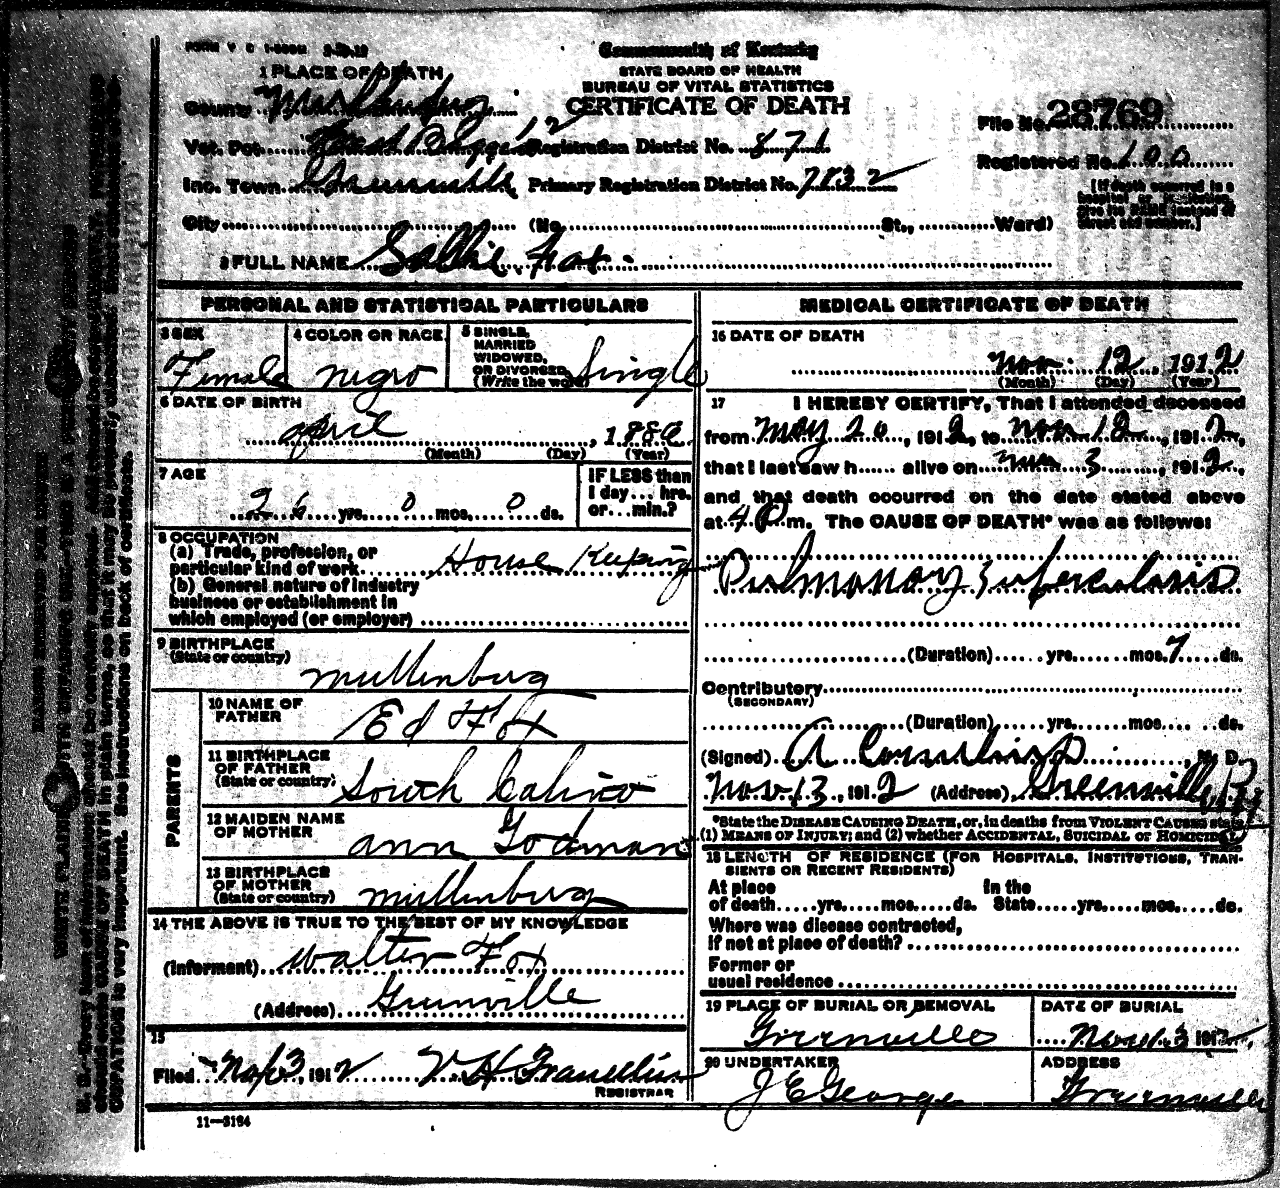 FORM V S 1-500M 3-20-12
Commonwealth of Kentucky
STATE BOARD OF HEALTH
BUREAU OF VITAL STATISTICS
CERTIFICATE OF DEATH
1 PLACE OF DEATH
County Muhlenburg
File No. 28769
Vot. Pct. Registration District No. 871
Registered No. 100
Inc. Town Greenville Primary Registration District No. 7832
[If death occurred in a hospital or institution, give its NAME instead of street and number.]
City (No. St., Ward)
2 FULL NAME Sallie Fox
PERSONAL AND STATISTICAL PARTICULARS
3 SEX
Female
4 COLOR OR RACE
negro
5 SINGLE,
MARRIED
WIDOWED,
OR DIVORCED
(Write the word)
Single
6 DATE OF BIRTH
april, 1886
(Month) (Day) (Year)
7 AGE
26 yrs. 0 mos. 0 ds.
IF LESS than
1 day... hrs.
or...min.?
8 OCCUPATION
(a) Trade, profession, or
particular kind of work House Keeping
(b) General nature of industry
business or establishment in
which employed (or employer)
9 BIRTHPLACE
(State or country)
mullenburg
PARENTS
10 NAME OF
FATHER
Ed Fox
11 BIRTHPLACE
OF FATHER
(State or country)
South Calino
12 MAIDEN NAME
OF MOTHER
ann Godman
13 BIRTHPLACE
OF MOTHER
(State or country)
mullenburg
14 THE ABOVE IS TRUE TO THE BEST OF MY KNOWLEDGE
(Informant) Walter Fox
(Address) Grunville
15
Filed Nov 13, 1912
REGISTRAR
11-3184
MEDICAL CERTIFICATE OF DEATH
16 DATE OF DEATH
Nov. 12, 1912
(Month) (Day) (Year)
17 I HEREBY CERTIFY, That I attended deceased
from May 20, 1912, to Nov 12, 1912,
that I last saw h...... alive on Nov 3, 1912,
and that death occurred on the date stated above
at 4 P m. The CAUSE OF DEATH* was as follows:
Pulmonary Tuberculosis
(Duration) yrs. mos. 7 ds.
Contributory
(SECONDARY)
(Duration) yrs. mos. ds.
(Signed) , M. D.
Nov 13, 1912 (Address) Greenville, Ky
*State the DISEASE CAUSING DEATH, or, in deaths from VIOLENT CAUSES state
(1) MEANS OF INJURY; and (2) whether ACCIDENTAL, SUICIDAL or HOMICIDAL
18 LENGTH OF RESIDENCE (FOR HOSPITALS, INSTITUTIONS, TRAN-
SIENTS OR RECENT RESIDENTS)
At place In the
of death yrs. mos. ds. State yrs. mos. ds.
Where was disease contracted,
if not at place of death?
Former or
usual residence
19 PLACE OF BURIAL OR REMOVAL
Greenville
DATE OF BURIAL
Nov 13 1912
20 UNDERTAKER
J E George
ADDRESS
Greenville